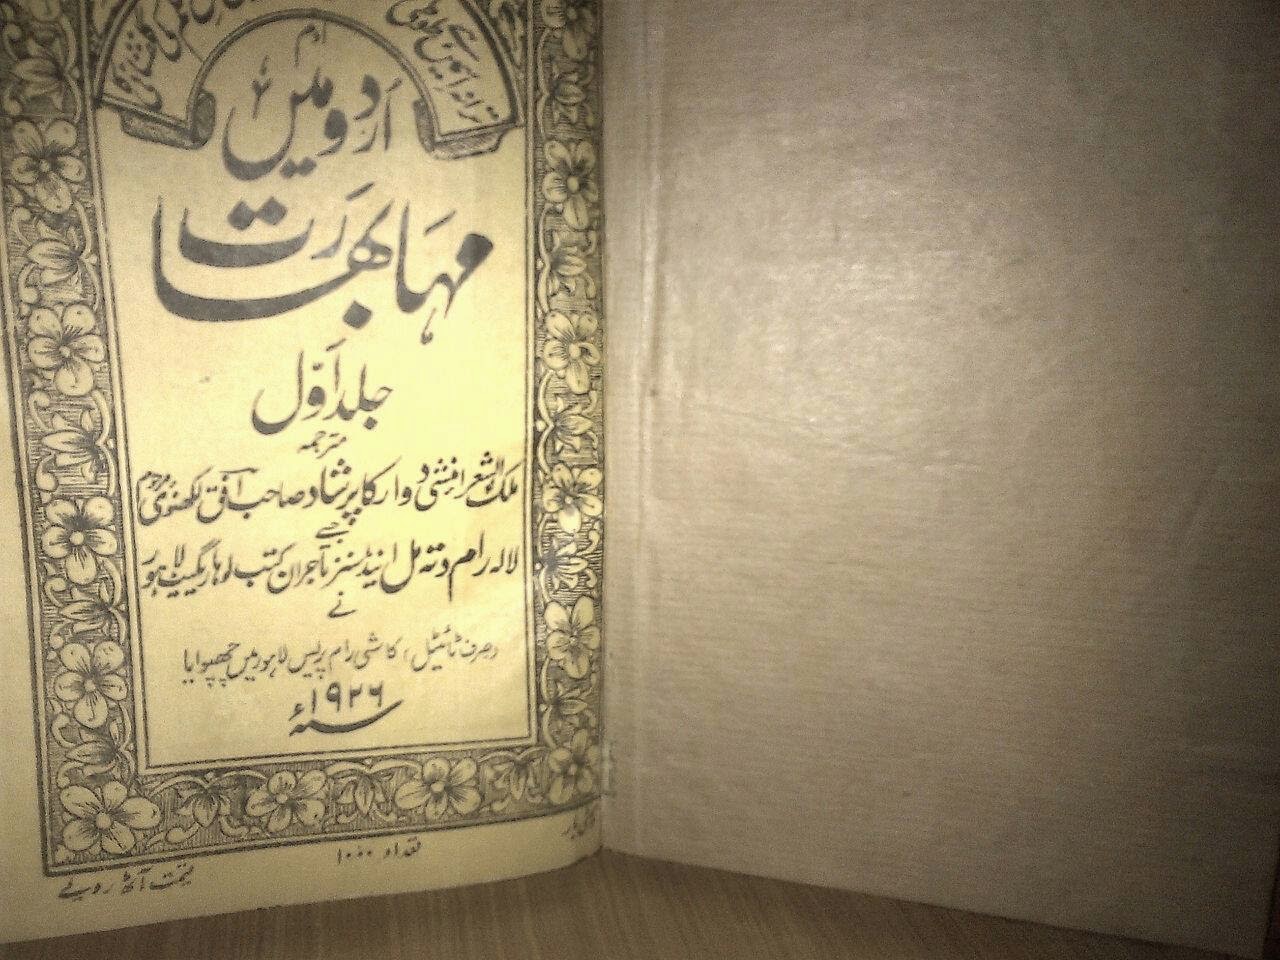 اوم
اُردو میں
مہابھارت
جلد اوّل
مترجمہ
ملک الشعرا منشی دوارکا پرشاد صاحب اُفق لکھنوی مرحوم
جسے
لالہ رام دتہ مل اینڈ سنز تاجران کتب لوہاریگیٹ لاہور
نے
(صرف ٹائیٹل) کاشی رام پریس لاہور میں چھپوایا
سنہ ۱۹۲۶ء
تعداد ۱۰۰۰
قیمت آٹھ روپے